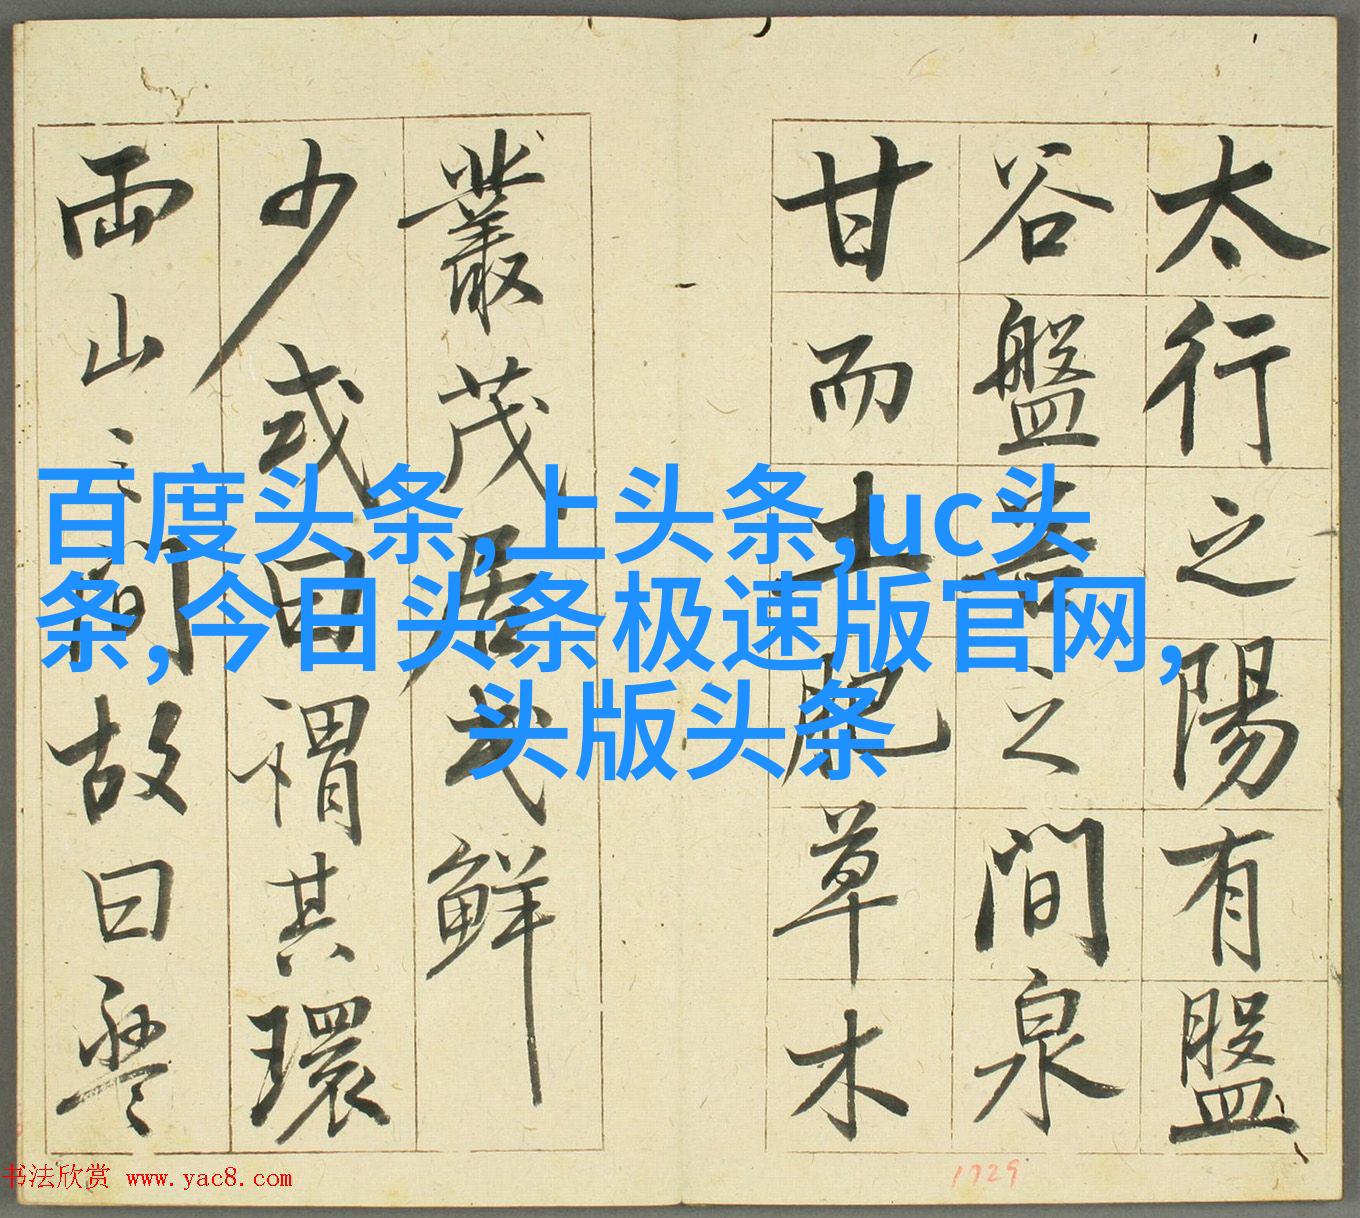 太行之陽有盤
谷盤谷之間泉
甘而土肥草木
叢茂居民鮮
少或曰謂其環
兩山之間故曰盤
百度头条,上头条,uc头
条,今日头条极速版官网,
头版头条
书法欣赏 www.yac8.com
1729